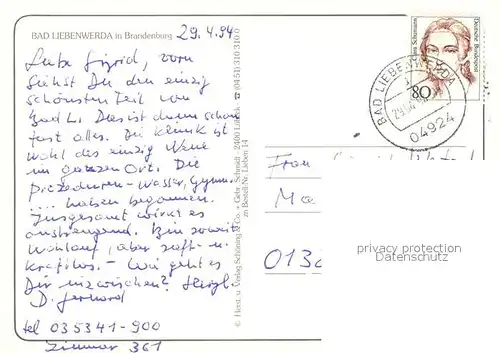 BAD LIEBENWERDA in Brandenburg
29.4.94
Liebe Sigrid, vorn
siehst Du den einzig
schönsten Teil von
Bad L. Dies ist dann schon
fast alles. Die Klinik ist
wohl das einzig Neue
im ganzen Ort. Die
Prozeduren - Wasser, Gymn.
.... haben begonnen.
Insgesamt wirkt es
anstrengend. Bin soweit
wohlauf, aber saft- u.
kraftlos. - Wie geht es
Dir inzwischen? Herzl.
D. Gerhard
tel 035341-900
Zimmer 361
© Herst. u. Verlag Schöning & Co. + Gebr. Schmidt · 2400 Lübeck ☎ (04 51) 310 31 0
zu Bestell-Nr. Lieben 14
Deutsche Bundespost
Schumann
80
BAD LIEBENWERDA
04924
Frau
Ma
013
privacy protection
Datenschutz